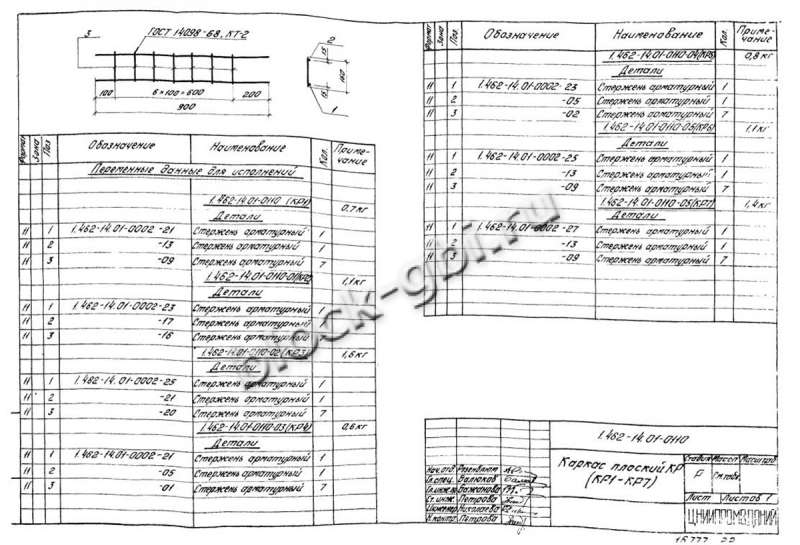 3
ГОСТ 14098-68, КТ-2
100
6×100=600
200
900
15
150
15
1
Формат Зона Поз Обозначение Наименование Кол. Приме-чание
Переменные данные для исполнений
1.462-14.01-0110 (КР1) 0,7кг
Детали
11 1 1.462-14.01-0002-21 Стержень арматурный 1
11 2 -13 Стержень арматурный 1
11 3 -09 Стержень арматурный 7
1.462-14.01-0110-01(КР2) 1,1кг
Детали
11 1 1.462-14.01-0002-23 Стержень арматурный 1
11 2 -17 Стержень арматурный 1
11 3 -16 Стержень арматурный 7
1.462-14.01-0110-02(КР3) 1,6кг
Детали
11 1 1.462-14.01-0002-25 Стержень арматурный 1
11 2 -21 Стержень арматурный 1
11 3 -20 Стержень арматурный 7
1.462-14.01-0110-03(КР4) 0,6кг
Детали
11 1 1.462-14.01-0002-21 Стержень арматурный 1
11 2 -05 Стержень арматурный 1
11 3 -01 Стержень арматурный 7
Формат Зона Поз. Обозначение Наименование Кол. Приме-чание
1.462-14.01-0110-04(КР5) 0,8кг
Детали
11 1 1.462-14.01-0002-23 Стержень арматурный 1
11 2 -05 Стержень арматурный 1
11 3 -02 Стержень арматурный 7
1.462-14.01-0110-05(КР6) 1,1кг
Детали
11 1 1.462-14.01-0002-25 Стержень арматурный 1
11 2 -13 Стержень арматурный 1
11 3 -09 Стержень арматурный 7
1.462-14.01-0110-06(КР7) 1,4кг
Детали
11 1 1.462-14.01-0002-27 Стержень арматурный 1
11 2 -13 Стержень арматурный 1
11 3 -09 Стержень арматурный 7
block-gbi.ru
1.462-14.01-0110
Каркас плоский КР
(КР1-КР7)
Стадия Масса Масштаб
Р См.табл.
Лист Листов 1
ЦНИИПРОМЗДАНИЙ
Нач.отд. Розенблюм
Гл.спец. Валюков
Гл.инж. Бажанова
Ст.инж. Петрова
Инженер Николаева
Н.контр. Петрова